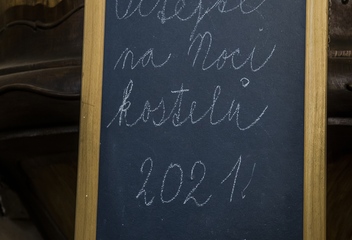 Vítejte
na Noci
kostelů
2021!